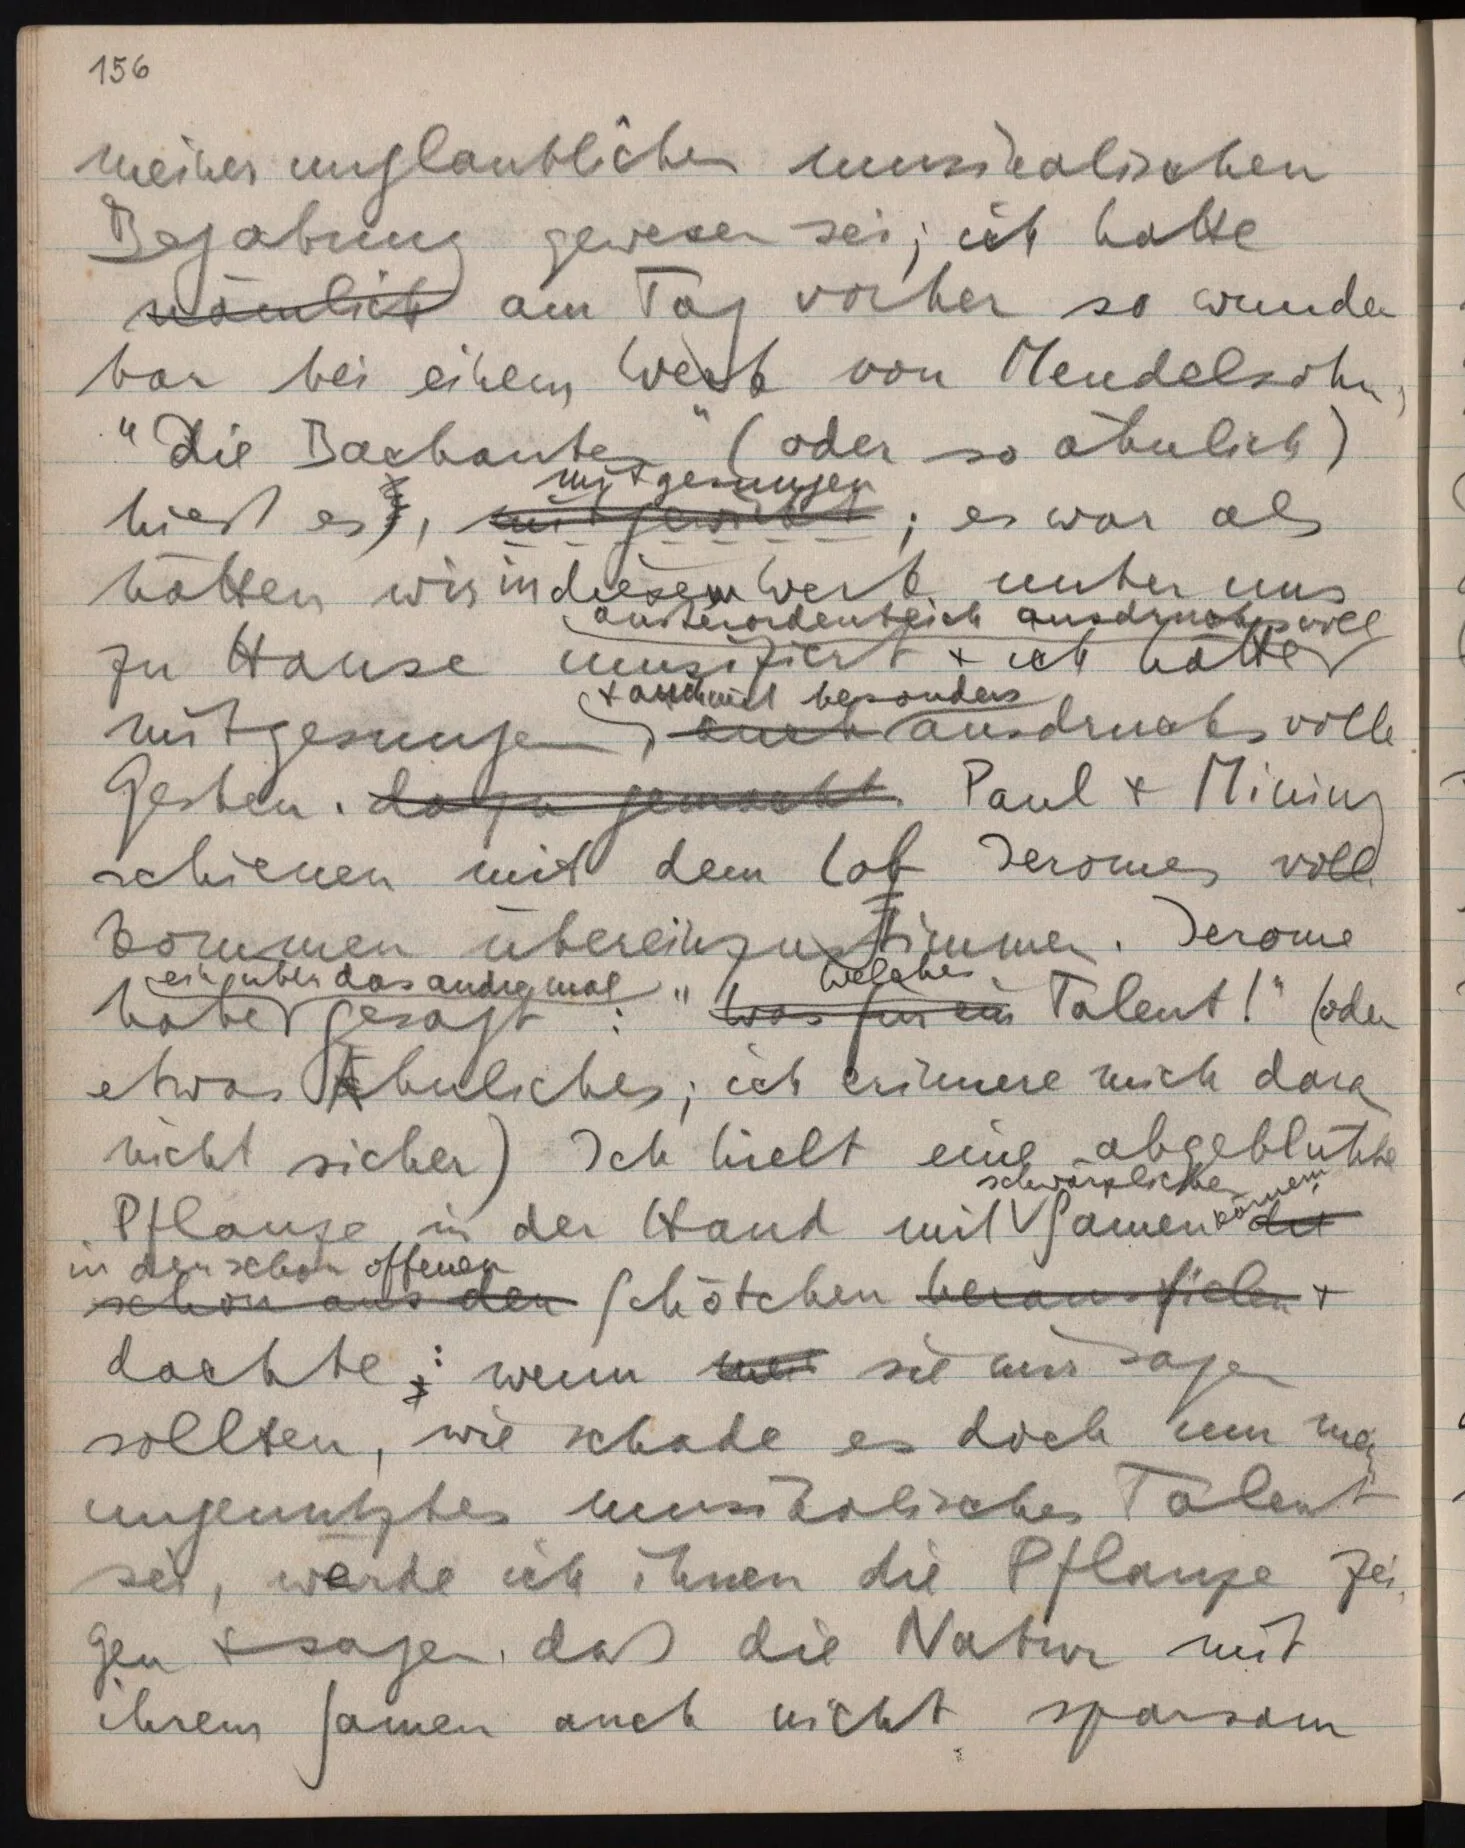 156
meiner unglaublichen musikalischen
Begabung gewesen sei; ich hatte
nämlich am Tag vorher so wunder
bar bei einem Werk von Mendelsohn,
"Die Bachanten" (oder so ähnlich)
mitgesungen
hiest es), mitgewirkt; es war als
hätten wir in diesem Werk unter uns
ausserordentlich ausdrucksvoll
zu Hause musiziert + ich hätte
+ auch mit besonders
mitgesungen, auch ausdrucksvolle
Gesten. dazu gemacht. Paul + Mining
schienen mit dem Lob Jeromes voll
kommen übereinzustimmen. Jerome
ein über das andremal welches
habe gesagt: "Was für ein Talent!" (oder
etwas Ähnliches; ich erinnere mich daran
nicht sicher) Ich hielt eine abgeblühte
schwärzlichen
Pflanze in der Hand mit Samenkörnern die
in den schon offenen
schon aus den Schötchen herausfielen +
dachte: wenn sie mir sagen
sollten, wie schade es doch um mein
ungenutztes musikalisches Talent
sei, werde ich ihnen die Pflanze zei
gen + sagen, daß die Natur mit
ihrem Samen auch nicht sparsam